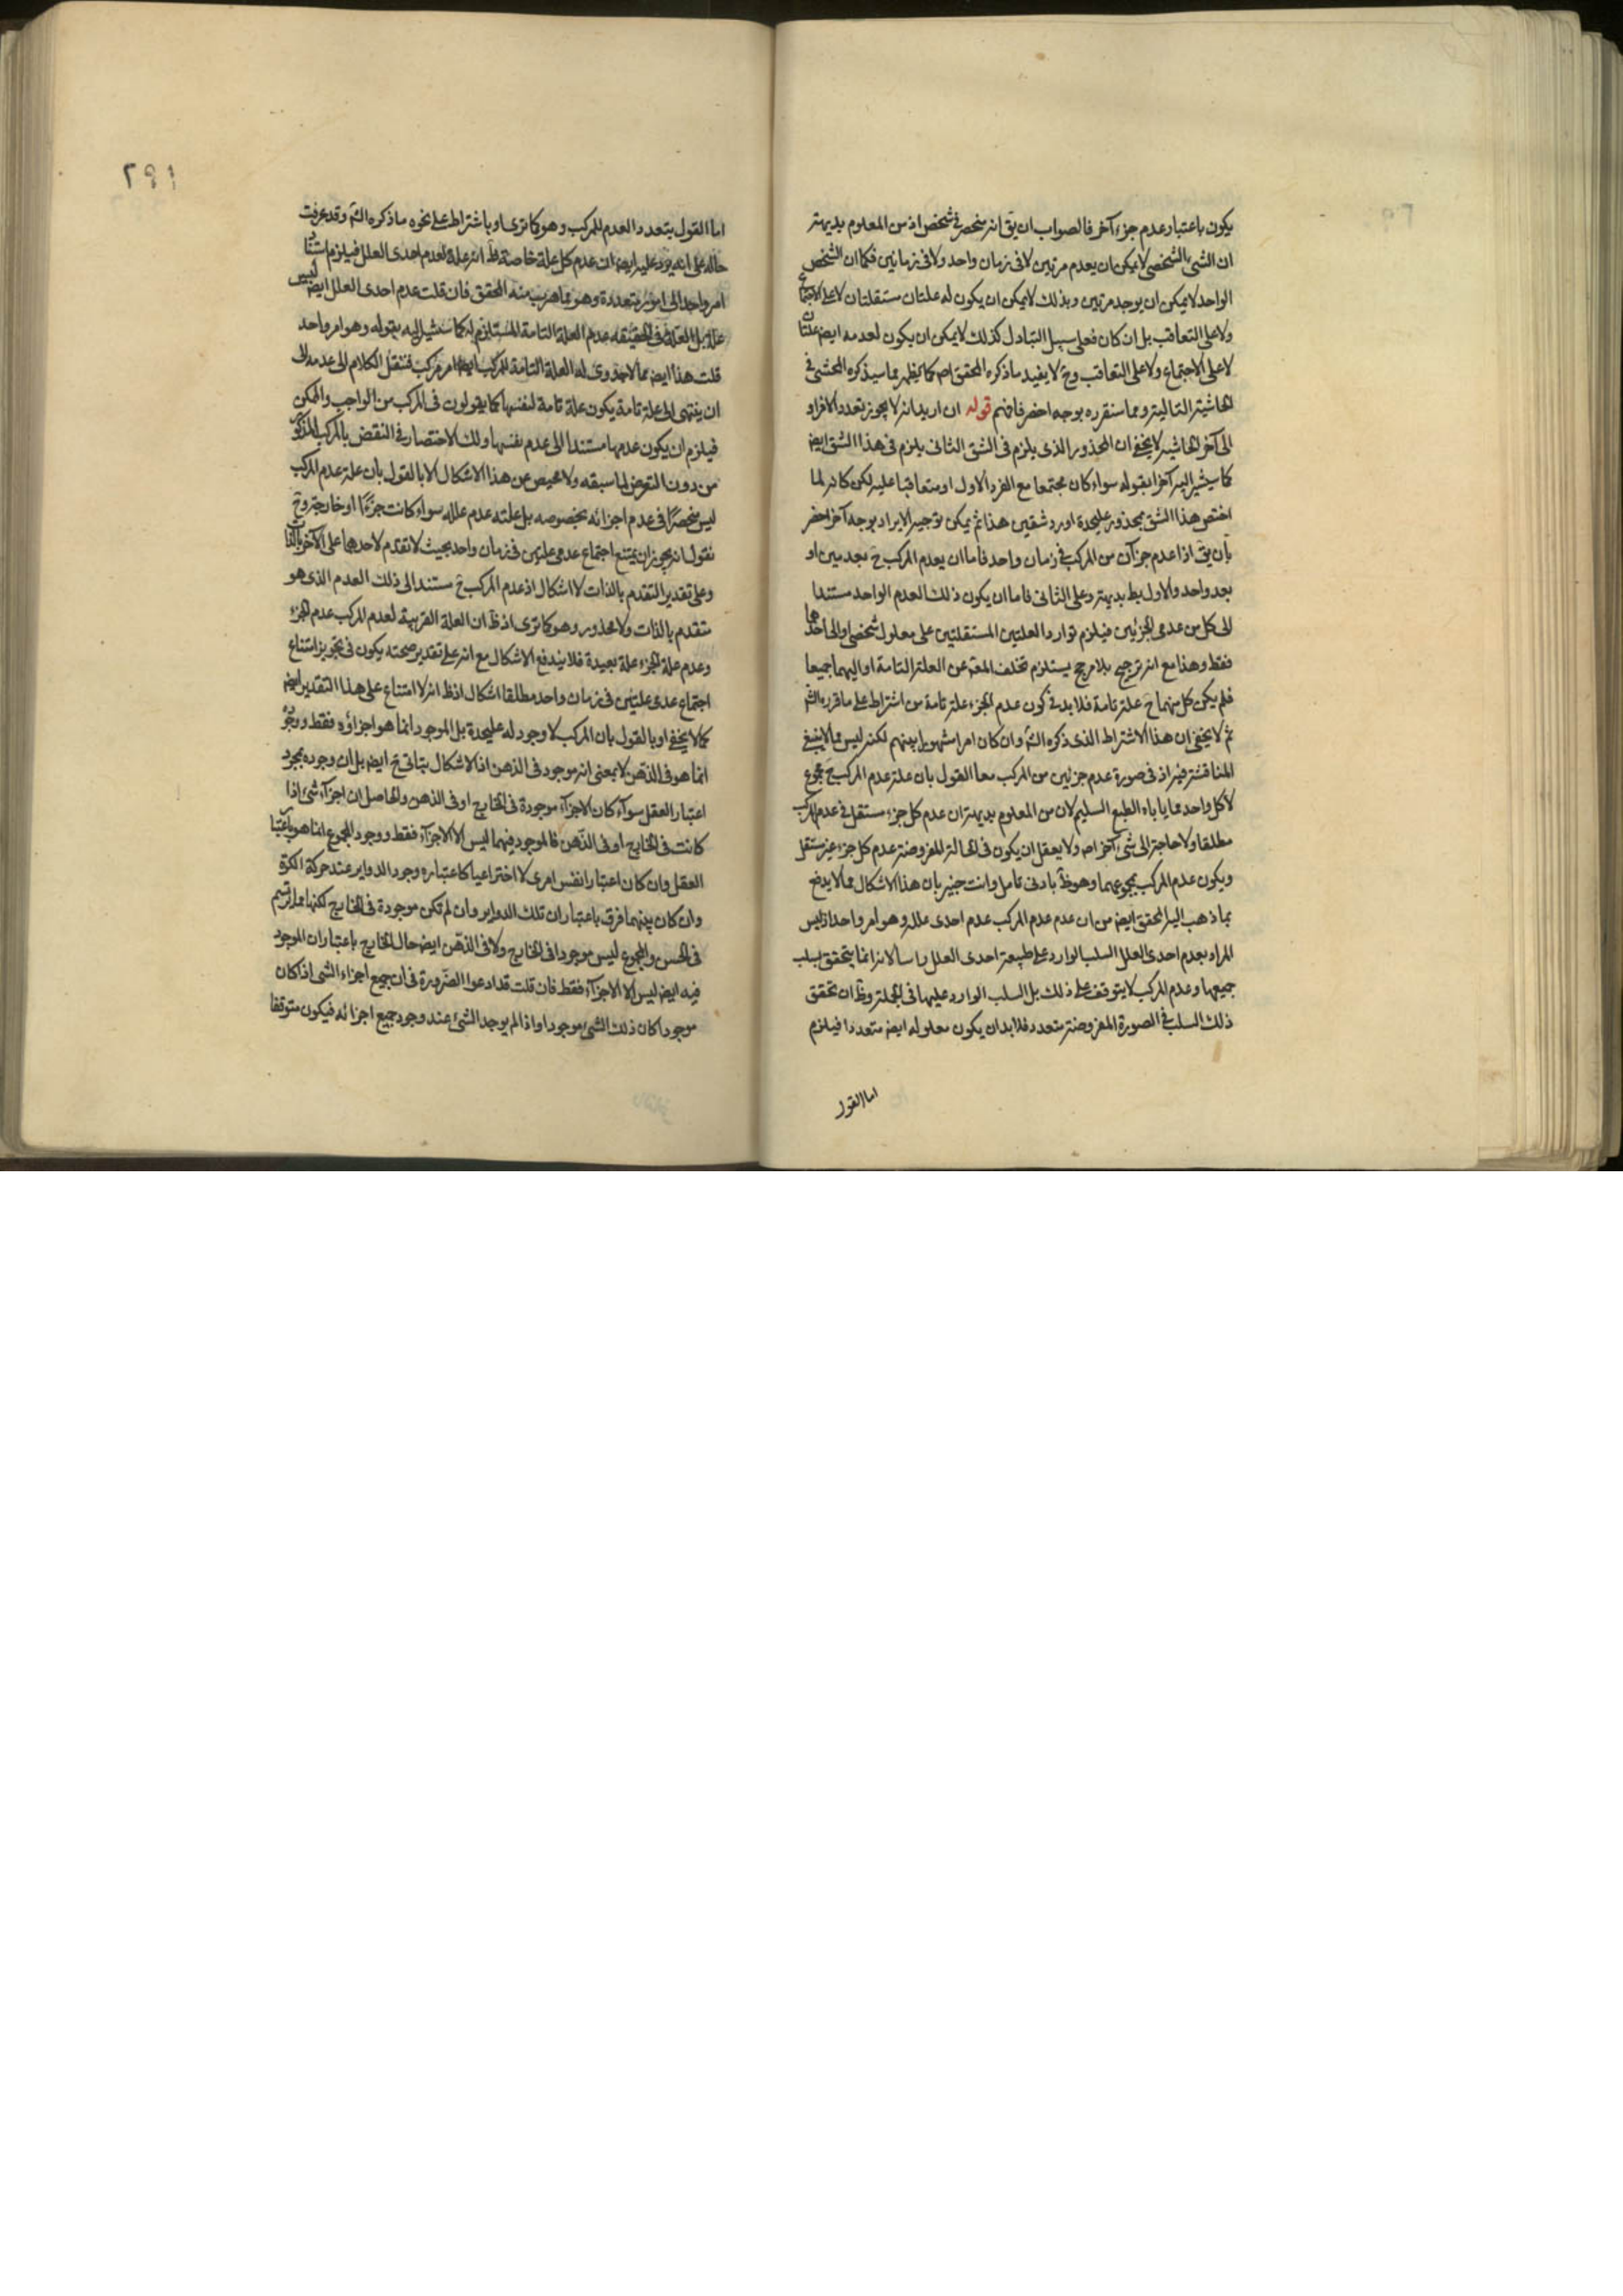 يكون باعتبار عدم جزء آخر فالصواب ان يق انه منحصر في شخص اذ من المعلوم بديهة
ان الشئ بالشخص لا يمكن ان يعدم مرتين لا في زمان واحد ولا في زمانين فكما ان الشخص
الواحد لا يمكن ان يوجد مرتين وبذلك لا يمكن ان يكون له علتان مستقلتان لا على الاجتماع
ولا على التعاقب بل ان كان فعلى سبيل التبادل كذلك لا يمكن ان يكون لعدمه ايضا علتان
لا على الاجتماع ولا على التعاقب وح لا يفيد ما ذكره المحقق اصلا كما يظهر مما سيذكره المحشى في
الحاشية التالية ومما سنقرره بوجه اخصر فافهم قوله ان اريد انه لا يجوز تعدد الافراد
الى آخر الحاشية لا يخفى ان المحذور الذى يلزم في الشق الثانى يلزم في هذا الشق ايض
كما سيشير اليه آخرا بقوله سواء كان مجتمعا مع الفرد الاول او متعاقبا عليه لكن كانه لما
اختص هذا الشق بمحذور عليحدة اورد شقين هذا ثم يمكن توجيه الايراد بوجه آخر اخصر
بان يق اذا عدم جزآن من المركب في زمان واحد فاما ان يعدم المركب ح بعدمين او
بعدم واحد والاول بط بديهة وعلى الثانى فاما ان يكون ذلك العدم الواحد مستندا
الى كل من عدمى الجزئين فيلزم توارد العلتين المستقلتين على معلول شخصى او الى احدهما
فقط وهذا مع انه ترجيح بلا مرجح يستلزم تخلف المعلول عن العلة التامة او اليهما جميعا
فلم يكن كل منهما ح علة تامة فلا بد في كون عدم الجزء علة تامة من اشتراط على ما قرره الشم
ثم لا يخفى ان هذا الاشتراط الذى ذكره الشم وان كان امرا مشهورا بينهم لكنه ليس مما لا ينبغى
المناقشة فيه اذ في صورة عدم جزئين من المركب معا القول بان علة عدم المركب ح مجموع
لا كل واحد مما ياباه الطبع السليم لان من المعلوم بديهة ان عدم كل جزء مستقل في عدم المركب
مطلقا ولا حاجة الى شئ آخر اصلا ولا يعقل ان يكون في الحالة المفروضة عدم كل جزء غير مستقل
ويكون عدم المركب بمجموعهما وهو ظ بادنى تامل وانت خبير بان هذا الاشكال مما لا يدفع
بما ذهب اليه المحقق ايض من ان عدم عدم المركب عدم احدى علله وهو امر واحد اذ ليس
المراد بعدم احدى العلل السلب الوارد على طبيعة احدى العلل راسا لانه انما يتحقق بسلب
جميعها وعدم المركب لا يتوقف على ذلك بل السلب الوارد عليها في الجملة وظ ان تحقق
ذلك السلب في الصورة المفروضة متعدد فلا بد ان يكون معلوله ايض متعددا فيلزم
اما القول
٢٩١
اما القول بتعدد العدم للمركب وهو كما ترى او باشتراط على نحوه ما ذكره الشم وقد عرفت
حاله على انه يرد عليه ايض ان عدم كل علة خاصة ظ انه علة لعدم احدى العلل فيلزم استناد
امر واحد الى امور متعددة وهو مما هرب منه المحقق فان قلت عدم احدى العلل ايض ليس
علة بل العلة في الحقيقة عدم العلة التامة المستلزم له كما سيشير اليه بقوله وهو امر واحد
قلت هذا ايض مما لا جدوى له العلة التامة للمركب ايضا امر مركب فننقل الكلام الى عدمه الى
ان ينتهى الى علة تامة يكون علة تامة لنفسها كما يقولون في المركب من الواجب والممكن
فيلزم ان يكون عدمها مستندا الى عدم نفسها ولك الاختصار في النقض بالمركب المذكور
من دون التعرض لما سبقه ولا محيص عن هذا الاشكال الا بالقول بان علة عدم المركب
ليس منحصرا في عدم اجزائه بخصوصه بل علته عدم علله سواء كانت جزءا او خارجة وح
نقول انه يجوز ان يمتنع اجتماع عدمى علتين في زمان واحد بحيث لا تقدم لاحدهما على الآخر بالذات
وعلى تقدير التقدم بالذات لا اشكال اذ عدم المركب ح مستند الى ذلك العدم الذى هو
متقدم بالذات ولا محذور وهو كما ترى اذ ظ ان العلة القريبة لعدم المركب عدم الجزء
وعدم علة الجزء علة بعيدة فلا يندفع الاشكال مع انه على تقدير صحته يكون في تجويز امتناع
اجتماع عدمى علتين في زمان واحد مطلقا اشكال اذ ظ انه لا امتناع على هذا التقدير ايض
كما لا يخفى او بالقول بان المركب لا وجود له عليحدة بل الموجود انما هو اجزاؤه فقط ووجوده
انما هو في الذهن لا بمعنى انه موجود في الذهن اذ الاشكال يتاتى ح ايض بل ان وجوده بمجرد
اعتبار العقل سواء كان الاجزاء موجودة في الخارج او في الذهن والحاصل ان اجزاء شئ اذا
كانت في الخارج او في الذهن فالموجود فيهما ليس الا الاجزاء فقط ووجود المجموع انما هو باعتبار
العقل وان كان اعتبارا نفس امرى لا اختراعيا كاعتباره وجود الدواير عند حركة الكرة
وان كان بينهما فرق باعتبار ان تلك الدواير وان لم تكن موجودة في الخارج لكنها مما ترتسم
في الحس والمجموع ليس موجودا في الخارج ولا في الذهن ايض حال الخارج باعتبار ان الموجود
فيه ايض ليس الا الاجزاء فقط فان قلت قد ادعوا الضرورة في ان جميع اجزاء الشئ اذا كان
موجودا كان ذلك الشئ موجودا واذا لم يوجد الشئ عند وجود جميع اجزائه فيكون متوقفا